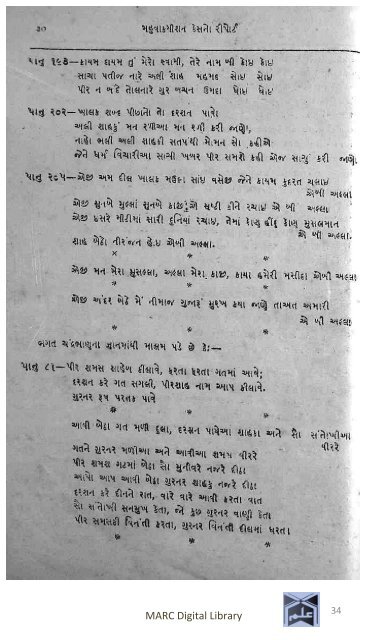 ૩૦ મહુવાકમીશન કેસનો રીપોર્ટ
પાનુ ૧૯૩—કાયમ દાયમ તું મેરા સ્વામી, તેરે નામ બી કોઇ કોઇ
સાચા પતીજ નારે અલી શાહ મહમદ સોઇ સોઇ
પીર ન બંદે તોલનારે ગુર બચન ઉમદા
પાનુ ૨૦૨—ખાલક શબ્દ પીછાનો તો દરશન પાવો
અલી શાહકું મન રળીઆ મન રળી કરી જાણો,
નાહો ભલી અલી શાહકી સતપંથી મોમન સો કહીએ
જેને ધર્મ વિચારીઆ સાચી ખબર પીર સમશે કહી એજ સાચું કરી જાણો.
પાનુ ૨૭૫—એજી અમ દીલ ખાલક મઉલા સાંઇ વસેજી જેને કાયમ કુદરત ચલાઇ
એબી અલ્લા
એજી સુનબે મુલ્લાં સુનબે કાજી એ સૃષ્ટી કીને રચાઇ એ બી અલ્લા
એજી કસરે મીટીમાં સારી દુનિયાં રચાઇ, તેમાં કોણ હીંદુ કોણ મુસલમાન
એ બી અલ્લા.
શાહ બેઠો નીરંજન હોઇ એબી અલ્લા.
× * *
એજી મન મેરા મુસલ્લા, અલ્લા મેરા કાજી, કાયા હમેરી મસીદાં એબી અલ્લા
* * *
એજી અંદર બેઠે મેં નીમાજ ગુજારૂં મુરખ કયા જાણે તાઅત અમારી
એ બી અલ્લા
* * *
ભગત ચંદ્રભાણુના જ્ઞાનમાંથી માલમ પડે છે કે:—
પાનુ ૮૧—પીર શમસ ચાહેળ હીલાવે, ફરતા ફરતા ગતમાં આવે;
દરશન કરે ગત સગલી, પીરશાહ નામ આપ કીલાવે.
ગુરનર રૂપ પરતક પાવે
* * *
આવી બેઠા ગત મળી દુલા, દરશન પાવેઆ શાહકા અને સૌ સંતોખીઆ
વીરરે
ગતને ગુરનર મળીઆ અને આવીઆ શમશ વીરરે
પીર શમશ ગતમાં બેઠા સૌ મુનીવરે નજરે દીઠા
આવો આપ આવી બેઠા ગુરનર શાહકું નજરે દીઠા
દરશન કરે દીનને રાત, વારે વારે આવી કરતા વાત
સૌ સંતોખી સનમુખ કેતા, જે કુછ ગુરનર વાણી કેતા
પીર સમસકી વિનંતી કરતા, ગુરનર વિનંતી દીલમાં ધરતા.
* * *
MARC Digital Library
علم
34